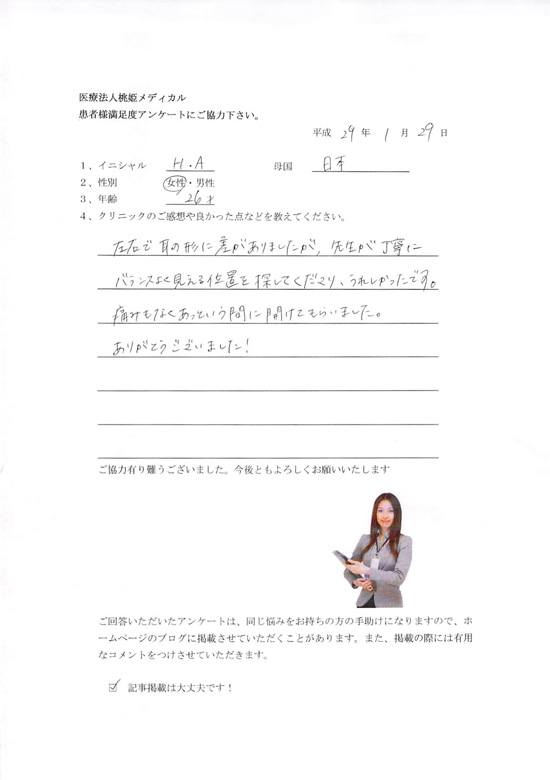 医療法人桃姫メディカル
患者様満足度アンケートにご協力下さい。
平成 29 年 1 月 29 日
1、イニシャル H.A 母国 日本
2、性別 女性・男性
3、年齢 26才
4、クリニックのご感想や良かった点などを教えてください。
左右で耳の形に差がありましたが、先生が丁寧に
バランスよく見える位置を探してくださり、うれしかったです。
痛みもなくあっという間に開けてもらいました。
ありがとうございました!
ご協力有り難うございました。今後ともよろしくお願いいたします
ご回答いただいたアンケートは、同じ悩みをお持ちの方の手助けになりますので、ホ
ームページのブログに掲載させていただくことがあります。また、掲載の際には有用
なコメントをつけさせていただきます。
☑ 記事掲載は大丈夫です!